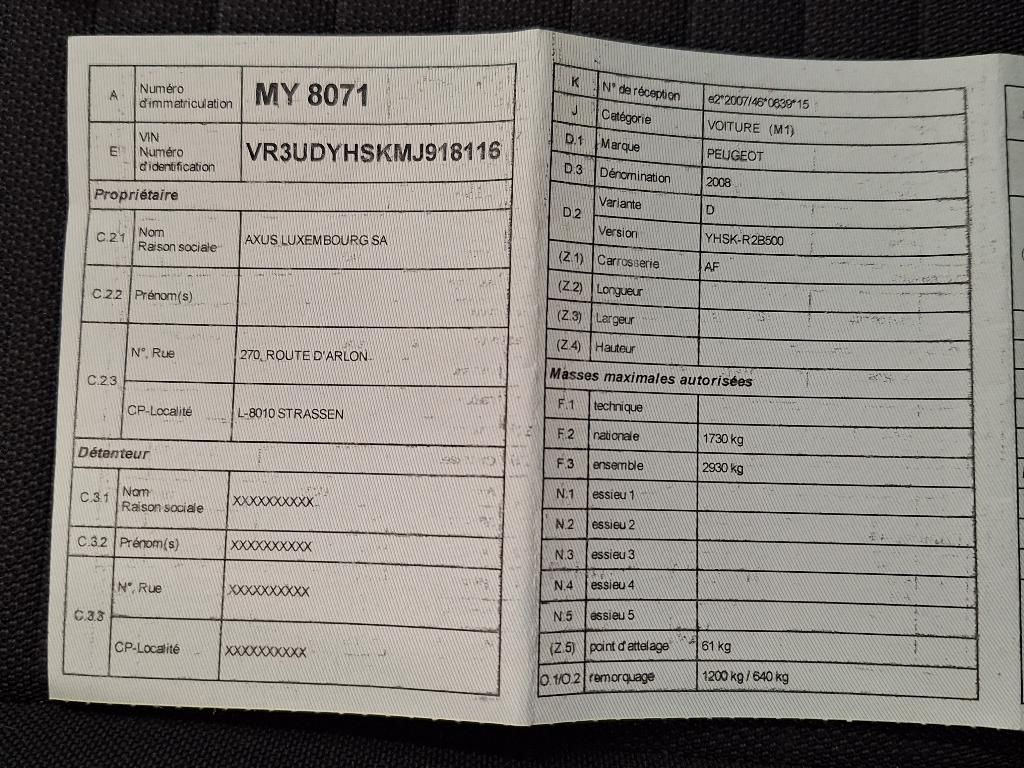 A Numéro d'immatriculation MY 8071
E VIN Numéro d'identification VR3UDYHSKMJ918116
Propriétaire
C.2.1 Nom Raison sociale AXUS LUXEMBOURG SA
C.2.2 Prénom(s)
C.2.3 N°, Rue 270, ROUTE D'ARLON
CP-Localité L-8010 STRASSEN
Détenteur
C.3.1 Nom Raison sociale XXXXXXXXXX
C.3.2 Prénom(s) XXXXXXXXXX
C.3.3 N°, Rue XXXXXXXXXX
CP-Localité XXXXXXXXXX
K N° de réception e2*2007/46*0639*15
J Catégorie VOITURE (M1)
D.1 Marque PEUGEOT
D.3 Dénomination 2008
D.2 Variante D
Version YHSK-R2B500
(Z.1) Carrosserie AF
(Z.2) Longueur
(Z.3) Largeur
(Z.4) Hauteur
Masses maximales autorisées
F.1 technique
F.2 nationale 1730 kg
F.3 ensemble 2930 kg
N.1 essieu 1
N.2 essieu 2
N.3 essieu 3
N.4 essieu 4
N.5 essieu 5
(Z.5) point d'attelage 61 kg
O.1/O.2 remorquage 1200 kg / 640 kg